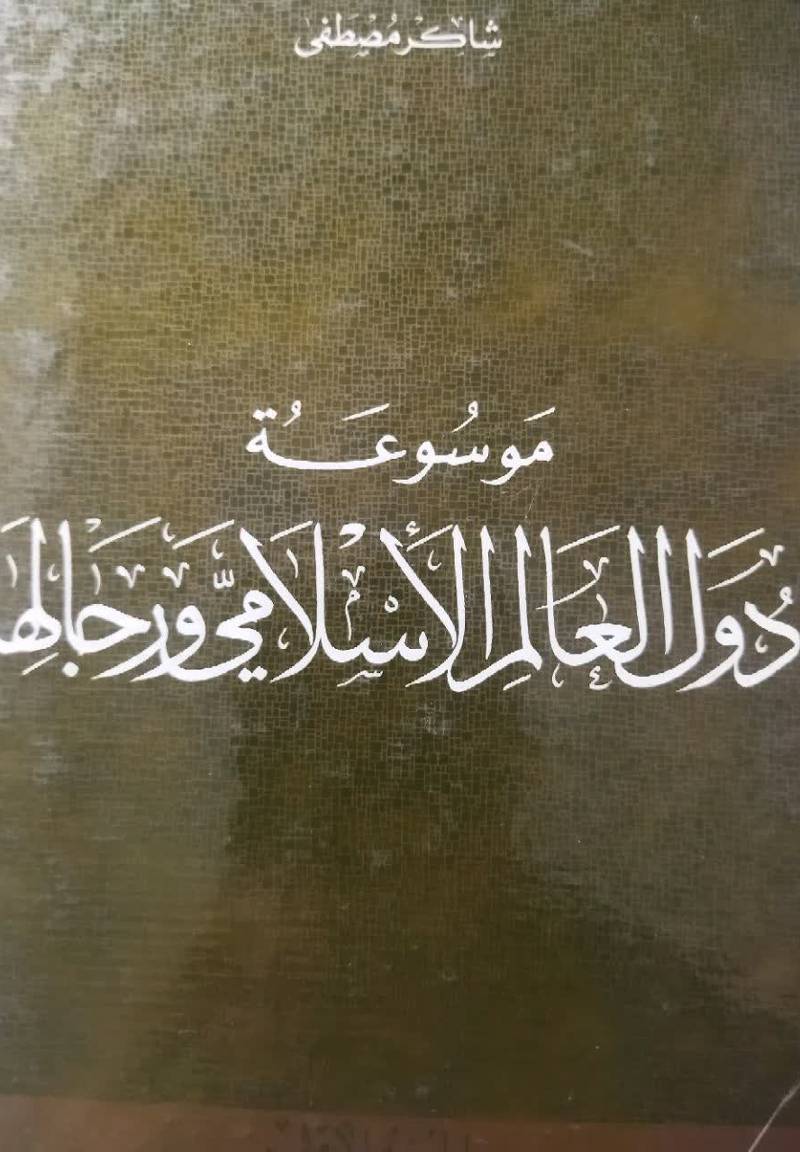 شاكر مصطفى
مَوسُوعَة
دُوَل العَالم الأسْلَاميّ وَرجَالها